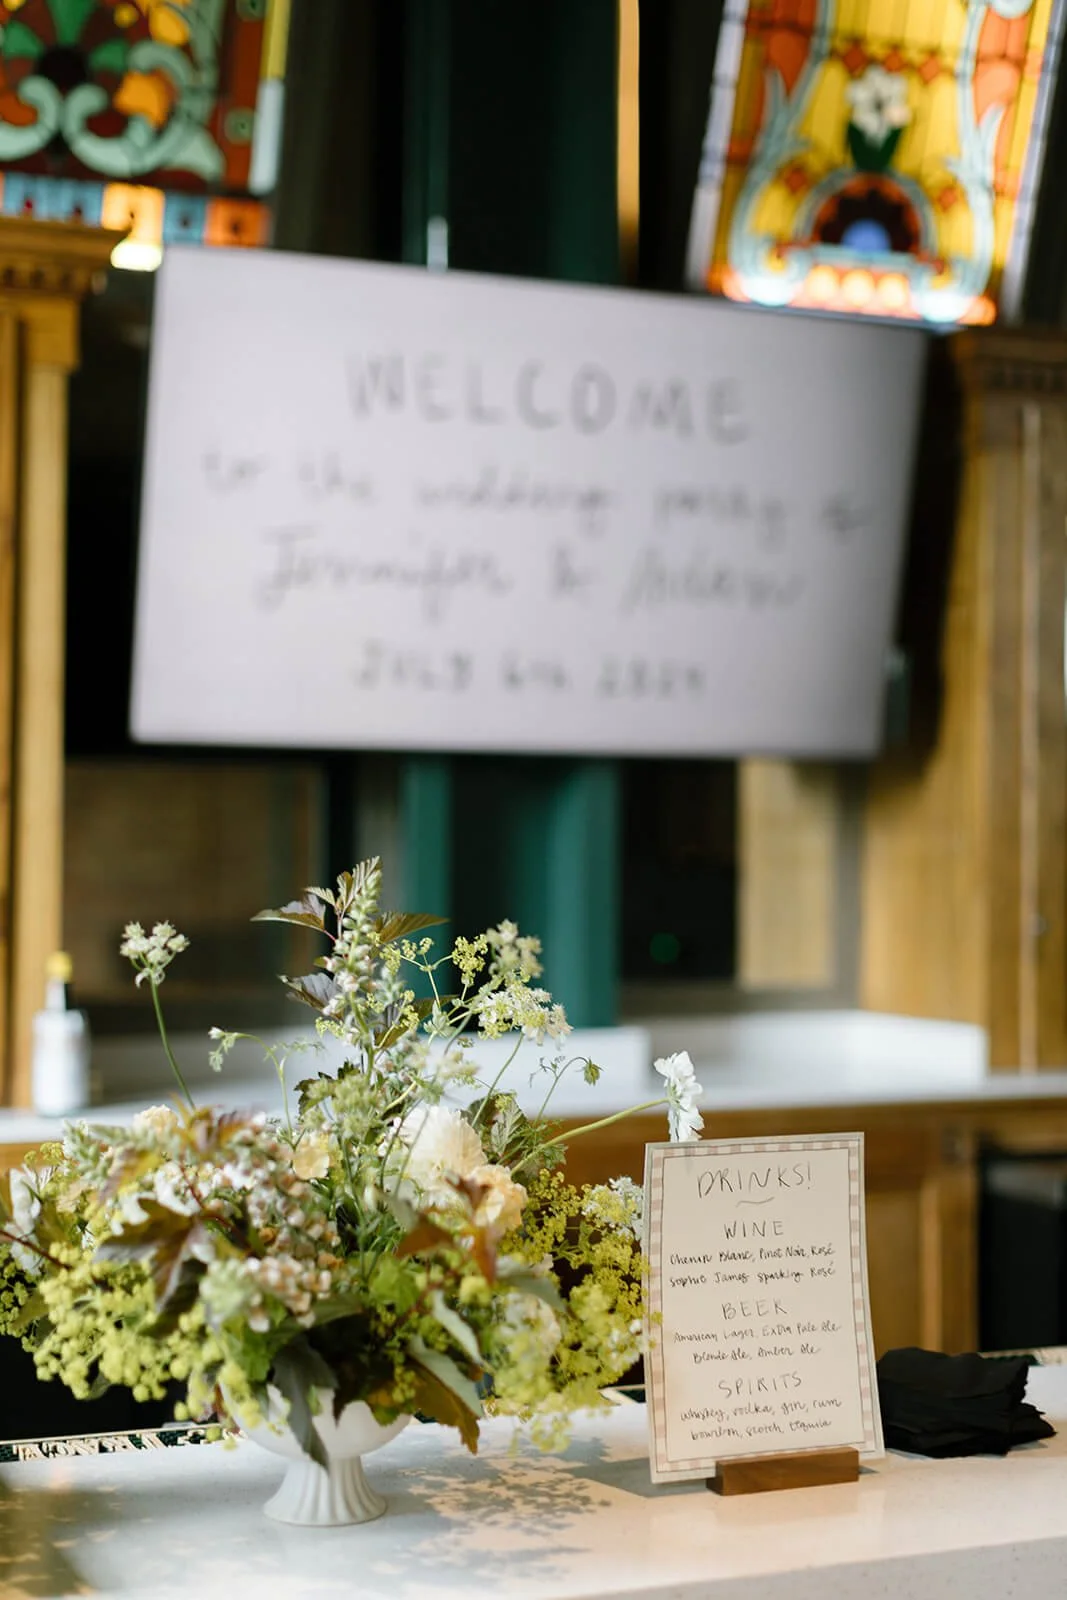 WELCOME
to the wedding party of
Jennifer &
JULY 6th 2024
DRINKS!
WINE
Chenin Blanc, Pinot Noir, Rosé
Sophie James Sparkling Rosé
BEER
American Lager, Extra Pale Ale
Blonde Ale, Amber Ale
SPIRITS
whiskey, vodka, gin, rum
bourbon, scotch, tequila